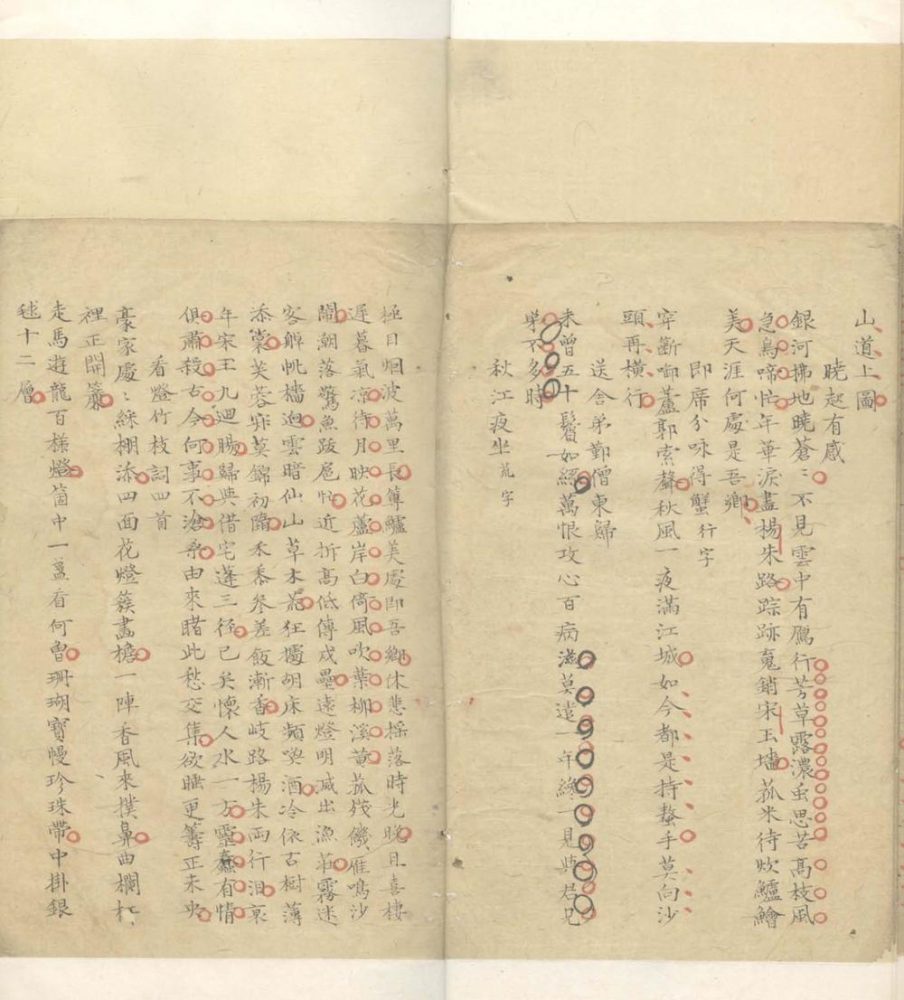 山道上圖
曉起有感
銀河拂地曉蒼〻不見雲中有鴈行芳草露濃虫思苦高枝風
急鳥啼忙年華淚盡楊朱路踪跡魂銷宋玉墻菰米待炊鱸鱠
美天涯何處是吾鄉
即席分咏得蟹行字
穿斷啣蘆郭索聲秋風一夜滿江城如今都是持螯手莫向沙
頭再橫行
送舍弟勤僧東歸
未曾五十鬢如絲萬恨攻心百病滋莫遠一年終一見與君兄
弟不多時
秋江夜坐
極目烟波萬里長蓴鱸美處即吾鄉休悲搖落時光晚且喜棲
遲暮氣凉待月映花蘆岸白倚風吹葉柳溪黃菰殘饑雁鳴沙
闊潮落驚魚跋扈忙近折高低傳戍壘遠燈明滅出漁莊霧迷
客觧帆檣迥雲暗仙山草木荒狂擕胡床頻喚酒冷依古樹薄
添裳芙蓉莫錦初隕禾黍參差飯漸香岐路楊朱兩行泪哀
年宋玉九迴腸歸與借宅蓬三徑已矣懷人水一方蠹有情
俱肅殺古今何事不滄桑由來睹此愁交集欲睡更籌正未央
看燈竹枝詞四首
豪家處〻綵棚添四面花燈簇畫檐一陣香風來撲鼻曲欄杆
裡正開簾
走馬遊龍百樣燈箇中一盞看何曾珊瑚寶幔珍珠帶中掛銀
毬十二層